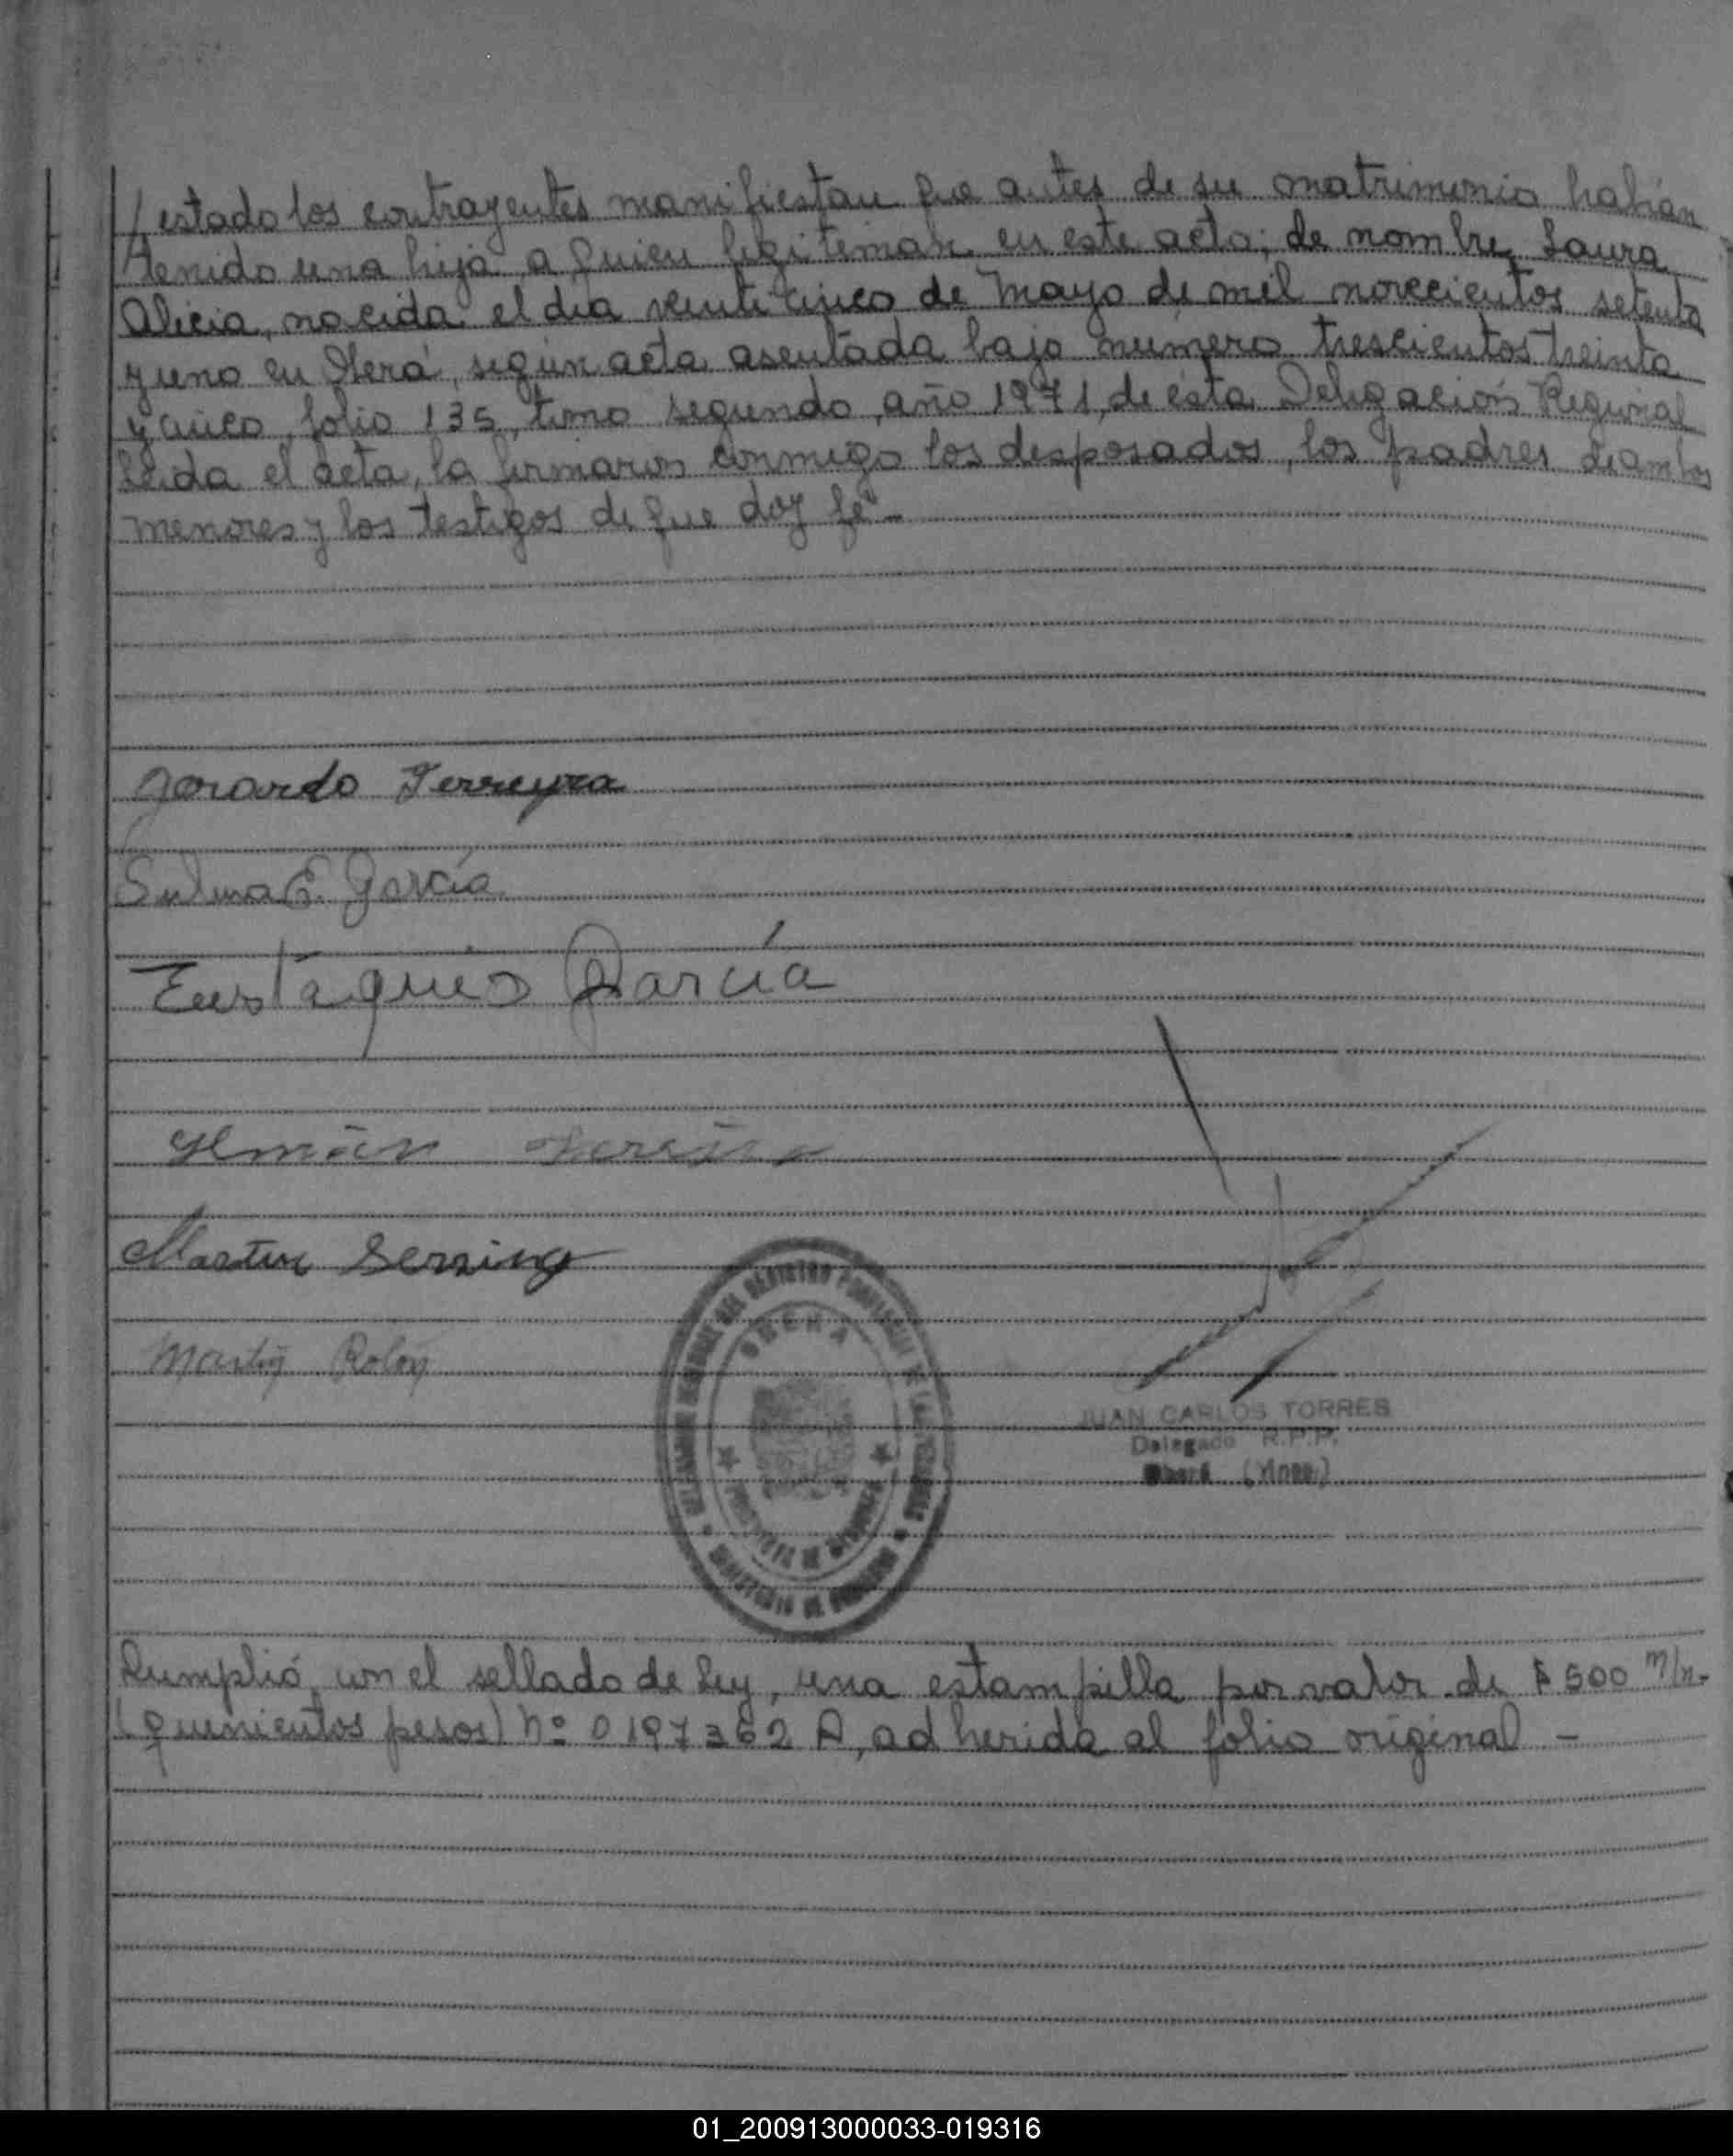 / estado los contrayentes manifiestan que antes de su matrimonio habían
tenido una hija a quien legitiman en este acto; de nombre Laura
Alicia, nacida el día veinticinco de Mayo de mil novecientos setenta
y uno en Oberá, según acta asentada bajo número trescientos treinta
y cinco, folio 135, tomo segundo, año 1971, de ésta Delegación Regional
Leida el acta, la firmaron conmigo los desposados, los padres de ambos
menores y los testigos de que doy fé -
Gerardo Ferreyra
Sulma E. García
Eustaquio García
Martin
Martin Rolon
OBERA
PROVINCIA DE MISIONES
JUAN CARLOS TORRES
Delegado R.P.P.
Oberá (Mnes)
Cumplió con el sellado de Ley, una estampilla por valor de $ 500 m/n.
(quinientos pesos) Nº 0197362 A, adherida al folio original -
01_200913000033-019316